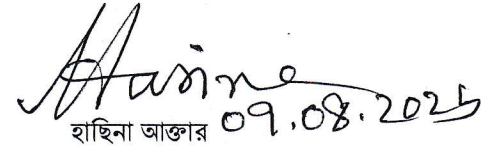 Hasina
হাছিনা আক্তার 09.08.2025